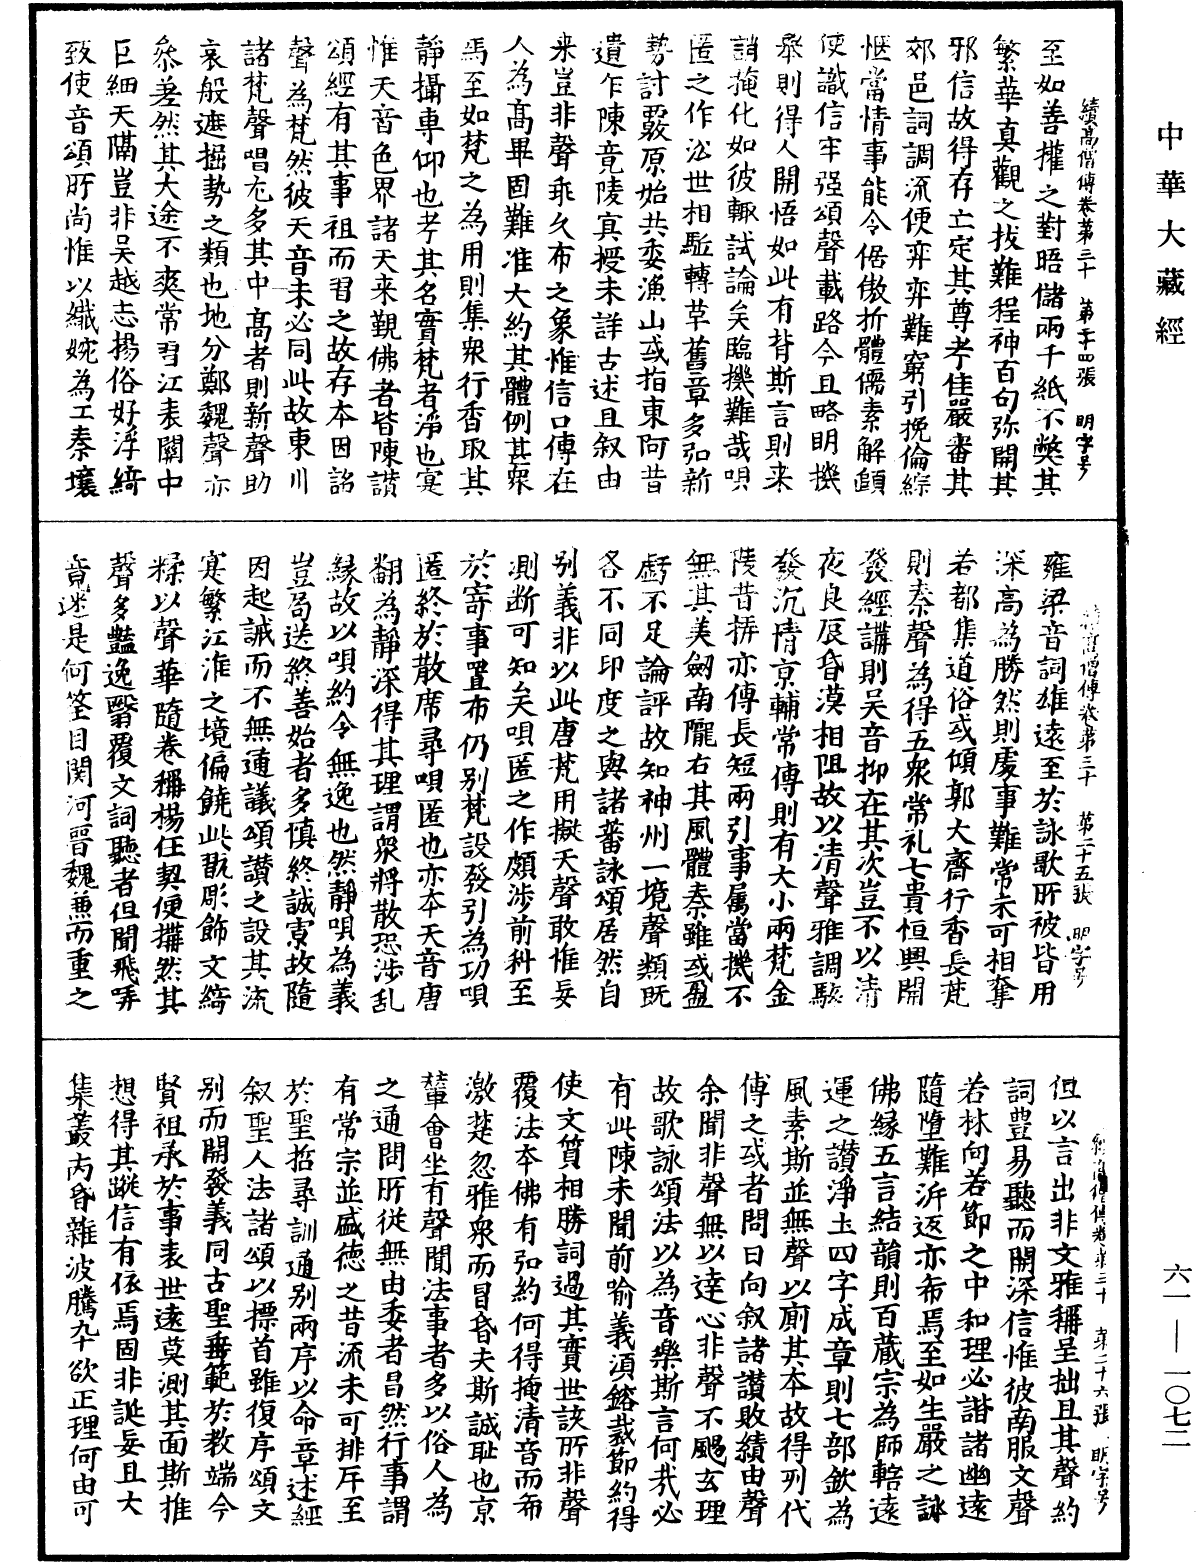 中華大藏經
續高僧傳卷第三十　第二十四張　明字号
至如善權之對晤儲兩千紙不弊其
繁華真觀之拔難程神百句弥開其
邪信故得存亡定其尊考佳嚴審其
郊邑詞調流便弈弈難窮引挽倫綜
惬當情事能令倨傲折體儒素解頤
使識信牢强頌聲載路今且略明機
舉則得人開悟如此有背斯言則来
誚掩化如彼輙試論矣臨機難哉唄
匿之作沿世相駈轉草舊章多弘新
勢討覈原始共委漁山或指東阿昔
遺乍陳竟陵冥授未詳古述且叙由
来豈非聲乖久布之象惟信口傳在
人為高畢固難准大約其體例其衆
焉至如梵之為用則集衆行香取其
靜攝專仰也考其名實梵者淨也寔
惟天音色界諸天来覲佛者皆陳讃
頌經有其事祖而習之故存本因詺
聲為梵然彼天音未必同此故東川
諸梵聲唱尤多其中高者則新聲助
哀般遮掘勢之類也地分鄭魏聲亦
叅差然其大途不爽常習江表關中
巨細天隔豈非吳越志揚俗好浮綺
致使音頌所尚惟以纖婉為工秦壤
續高僧傳卷第三十　第二十五張　明字号
雍梁音詞雄遠至於詠歌所被皆用
深高為勝然則處事難常未可相奪
若都集道俗或傾郭大齋行香長梵
則秦聲為得五衆常礼七貴恒興開
發經講則吳音抑在其次豈不以清
夜良辰昏漠相阻故以清聲雅調駭
發沉情京輔常傳則有大小兩梵金
陵昔拼亦傳長短兩引事属當機不
無其美劒南隴右其風體秦雖或盈
虧不足論評故知神州一境聲類既
各不同印度之與諸蕃詠頌居然自
别義非以此唐梵用擬天聲敢惟妄
測断可知矣唄匿之作頗涉前科至
於寄事置布仍别梵設發引為功唄
匿終於散席尋唄匿也亦本天音唐
翻為靜深得其理謂衆將散恐涉乱
縁故以唄約令無逸也然靜唄為義
豈局送終善始者多慎終誠寡故隨
因起誡而不無通議頌讃之設其流
寔繁江淮之境偏饒此翫彫飾文綺
糅以聲華隨卷稱楊任契便構然其
聲多豔逸翳覆文詞聽者但聞飛弄
竟迷是何筌目関河晉魏兼而重之
續高僧傳卷第三十　第二十六張　明字号
但以言出非文雅稱呈拙且其聲約
詞豊易聽而開深信惟彼南服文聲
若林向若節之中和理必諧諸幽遠
隨墮難泝返亦希焉至如生嚴之詠
佛縁五言結韻則百歲宗為師轄遠
運之讃淨土四字成章則七部欽為
風素斯並無聲以廁其本故得列代
傳之或者問曰向叙諸讃敗績由聲
余聞非聲無以達心非聲不颺玄理
故歌詠頌法以為音樂斯言何㢤必
有此陳未聞前喻義湏鎔裁節約得
使文質相勝詞過其實世該所非聲
覆法本佛有弘約何得掩清音而希
激楚忽雅衆而冒昏夫斯誠耻也京
輦會坐有聲聞法事者多以俗人為
之通問所從無由委者昌然行事謂
有常宗並盛德之昔流未可排斥至
於聖哲尋訓通别兩序以命章述經
叙聖人法諸頌以摽首雖復序頌文
别而開發義同古聖垂範於教端今
賢祖承於事表世遠莫測其面斯推
想得其蹤信有依焉固非誕妄且大
集叢丙昏雜波騰卒欲正理何由可
六一—一〇七二